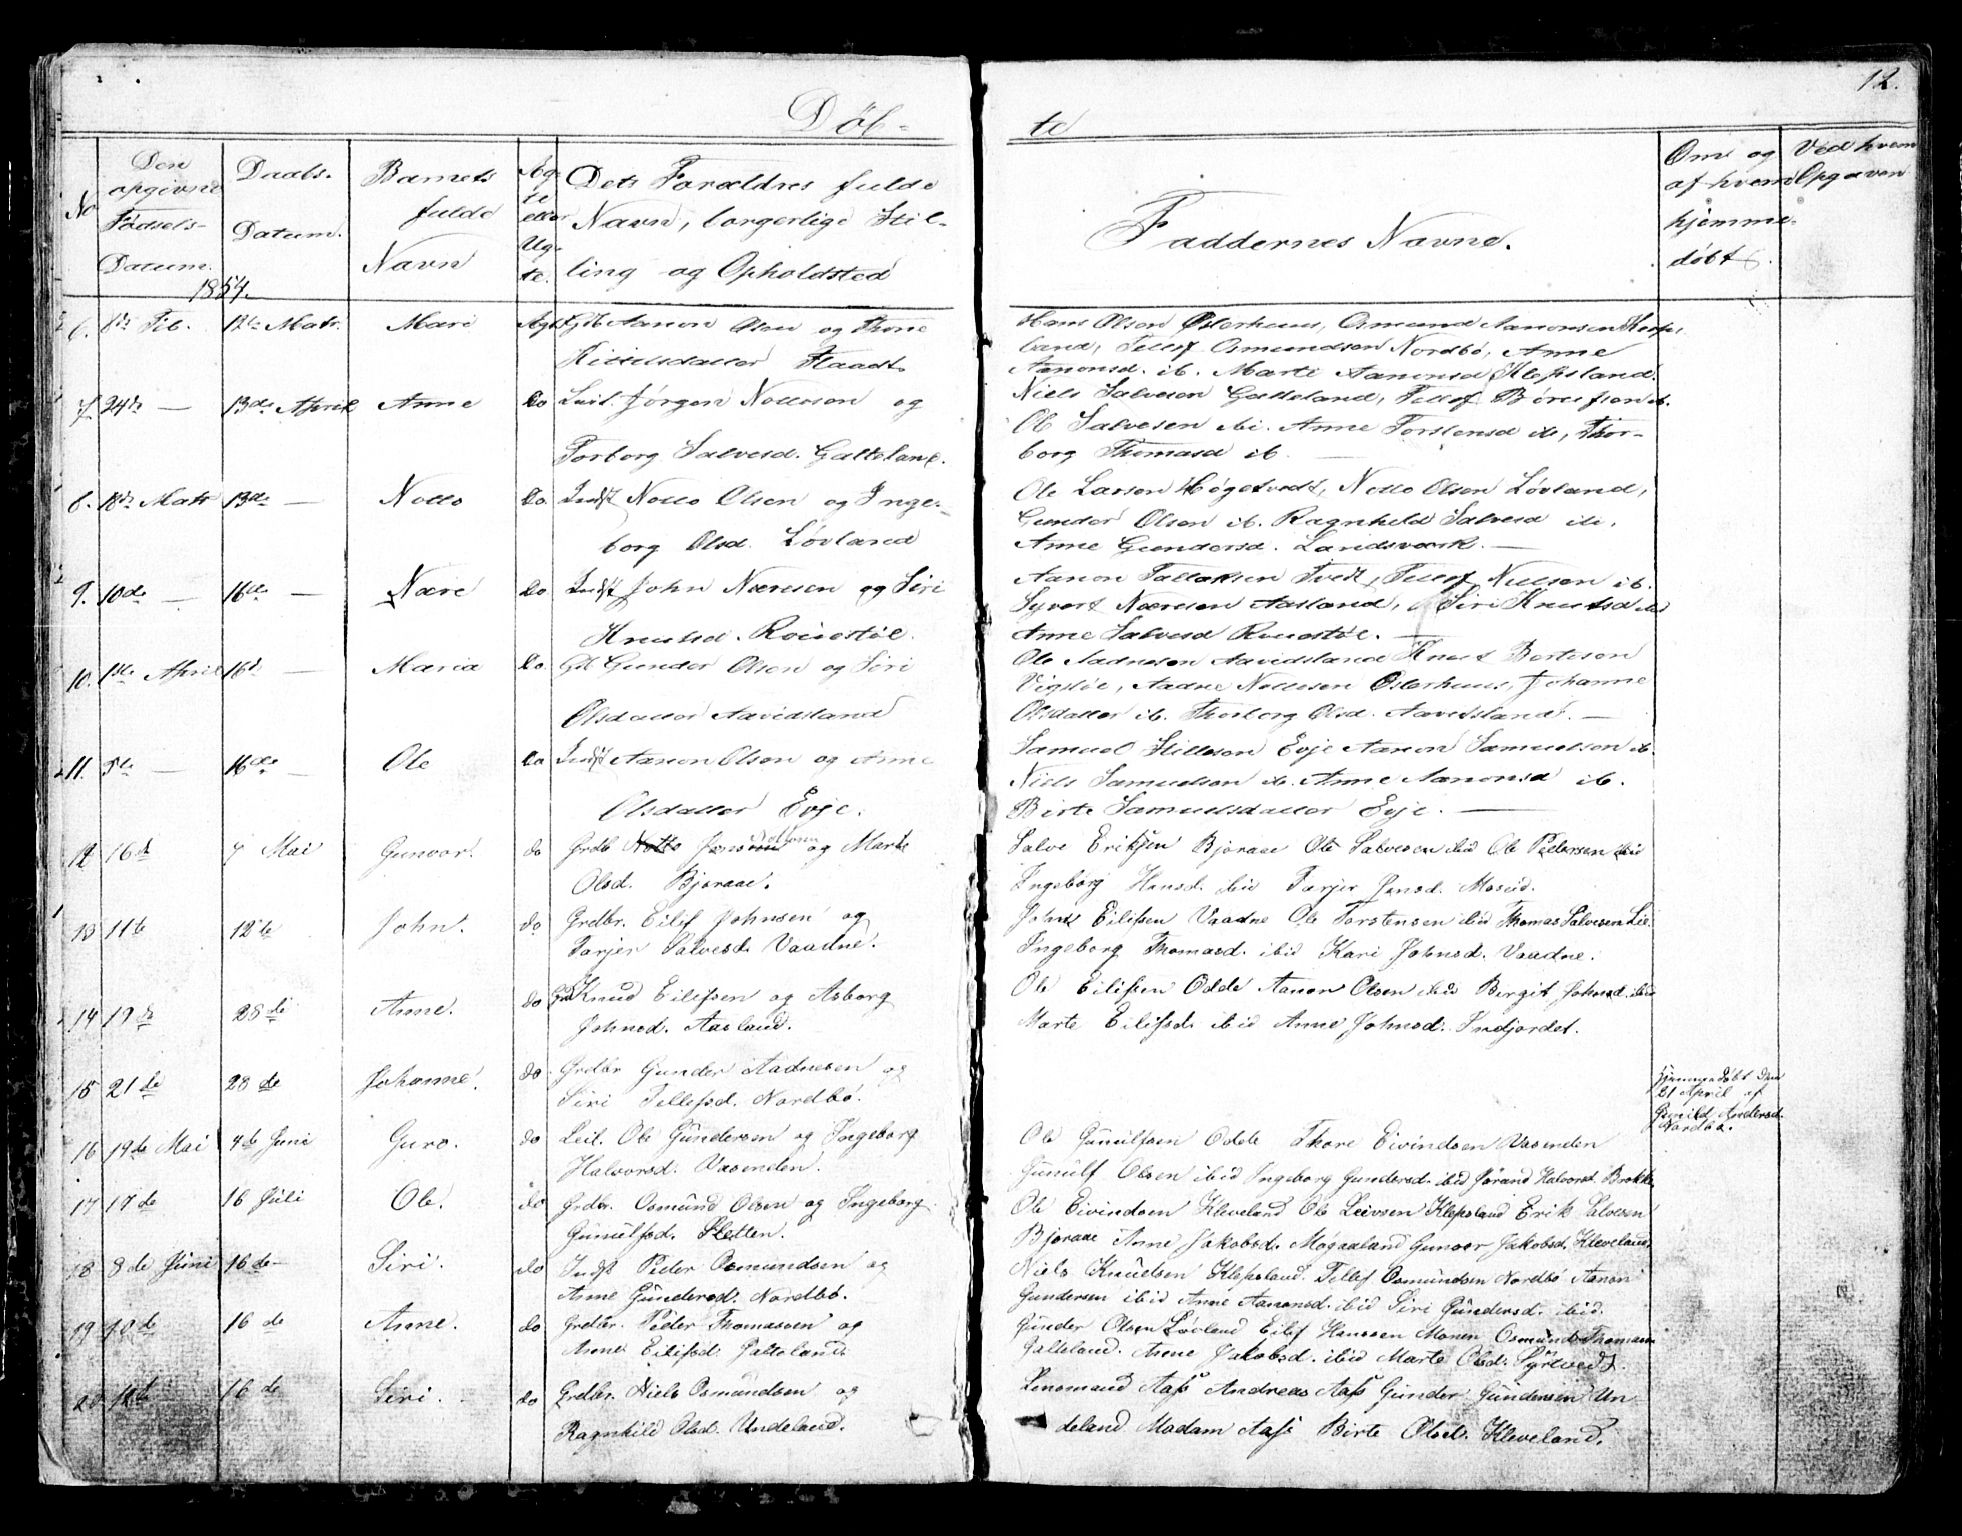 12.
Døb- te
No
Den opgivne Fødsels- Datum.
Daabs- Datum.
Barnets fulde Navn
Ægte eller Uægte.
Dets Forældres fulde Navn, borgerlige Stilling og Opholdsted
Faddernes Navne.
Om og af hvem hjemmedøbt.
Ved hvem Opgaven
1854.
6. 8de Feb. 12te Mats. Mari Ægt Gdb Aanon Olsen og Thone
Kittelsdatter Flaadt.
Hans Olsen Østerhuus, Osmund Aanonsen
land, Tellef Osmundsen Nordbø, Anne
Aanonsd. ib. Marti Aanonsd Klepsland.
7. 24de — 13de April Anne Do Leil. Jørgen Nottoson og
Torborg Salvesd. Galteland.
Niels Salvesen Galteland, Tellef
Ole Salvesen ibi. Anne Torstensd ib, Thor-
borg Thomasd ib. —
8. 18de Mats 13de — Notto Do. Indst Notto Olsen og Inge-
borg Olsd. Løvland
Ole Larsen Høgetvedt, Notto Olsen Løvland,
Gunder Olsen ib. Ragnhild Salvesd ib.
Anne Gundersd. Landsværk. —
9. 10de — 16de — Nære Do Indst John Næresen og Siri
Knutsd. Rouestøl.
Aanon Tallaksen Tvedt, Tellef Nielsen ib.
Syvert Næresen Aasland, Siri Knutsd ib
Anne Salvesd Rouestøl. —
10. 1ste April 16d — Maria Do Gd Gunder Olsen og Siri
Olsdatter Aavidsland
Ole Aadnesen Aavidsland Knut Bertesen
Vigstøl, Aadne Nottosen Østerhuus, Johanne
Olsdatter ib. Thorborg Olsd. Aavidsland. —
11. 5te — 16de — Ole Do Indst Aanon Olson og Anne
Olsdatter Evje.
Samuel Stillesen Evje Aanon Samuelson ib.
Niels Samuelson ib. Anne Aanonsd ib.
Birte Samuelsdatter Evje. —
12 16d 7 Mai Gunvor. do Grdb Notto og Marte
Olsd. Bjoraae.
Salve Eriksen Bjoraae Ole Salvesen ibid Ole Pedersen ibid
Ingeborg Hansd. ibid Tarjer Jensd. Mosid.
13 11te 12te John. do Grdbr. Eilif Johnsen og
Tarjer Salvesd. Vaadne.
John Eilifsen Vaadne Ole Torstensen ibid Thomas Salvesen Lie
Ingeborg Thomasd. ibid Kari Johnsd. Vaadne.
14 19de 28de Anne. do Knud Eilifsen og Asborg
Johnsd. Aasland.
Ole Eilifsen Odde Aanon Olsen ibid Bergit Johnsd. ibid
Marte Eilifsd. ibid Anne Johnsd. Indjordet.
15 21de 28de Johanne. do Grdbr Gunder Aadnesen og
Siri Tellefsd. Nordbø.
Hjemmedøbt den
21 April af
Gunild Andersd.
Nordbø.
16 19de Mai 4de Juni Guro. do Leil. Ole Gundersen og Ingeborg
Halvorsd. Vasenden.
Ole Gunulfsen Odde Thore Eivindsen Vasenden
Gunulf Olsen ibid Ingeborg Gundersd. ibid Jørand Halvorsd. Brokke
17 17de 16 Juli Ole. do Grdbr. Osmund Olsen og Ingeborg
Gunulfsd. Sletten.
Ole Eivindsen Kleveland Ole Leivsen Klepsland Erik Salvesen
Bjoraae Anne Jakobsd. Møgaaland Gunvor Jakobsd. Kleveland.
18 8de Juni 16de Siri. do Indst Peder Osmundsen og
Anne Gundersd. Nordbø.
Niels Knudsen Klepsland. Tellef Osmundsen Nordbø Aanon
Gundersen ibid Anne Aanonsd. ibid Siri Gundersd. ibid.
19 10de 16de Anne. do Grdbr. Peder Thomassen og
Anne Eilifsd. Galteland
Gunder Olsen Løvland Eilef Hanssen Monen Osmund Thomass
Galteland. Anne Jakobsd. ibid Marte Olsd. Syrtvedt.
20 12te 16de Siri. do Grdbr. Niels Osmundsen og
Ragnhild Olsd. Undeland.
Lensmand Aas Andreas Aas Gunder Gundersen Un
deland Madam Aas Birte Olsd. Kleveland.